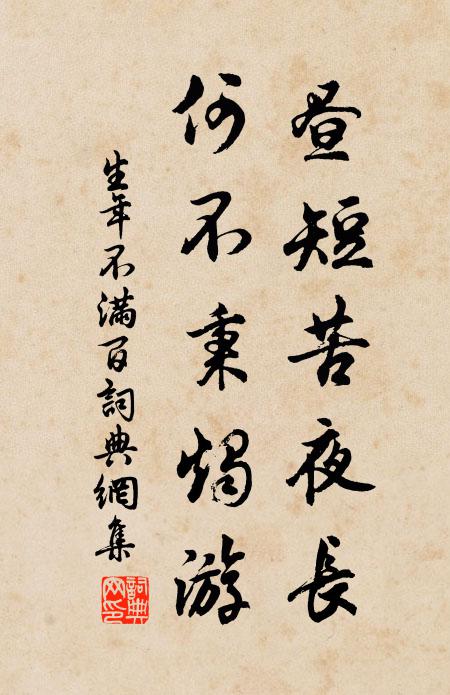 昼短苦夜長
何不秉燭游
生年不滿百詞典網集
詞典
网印